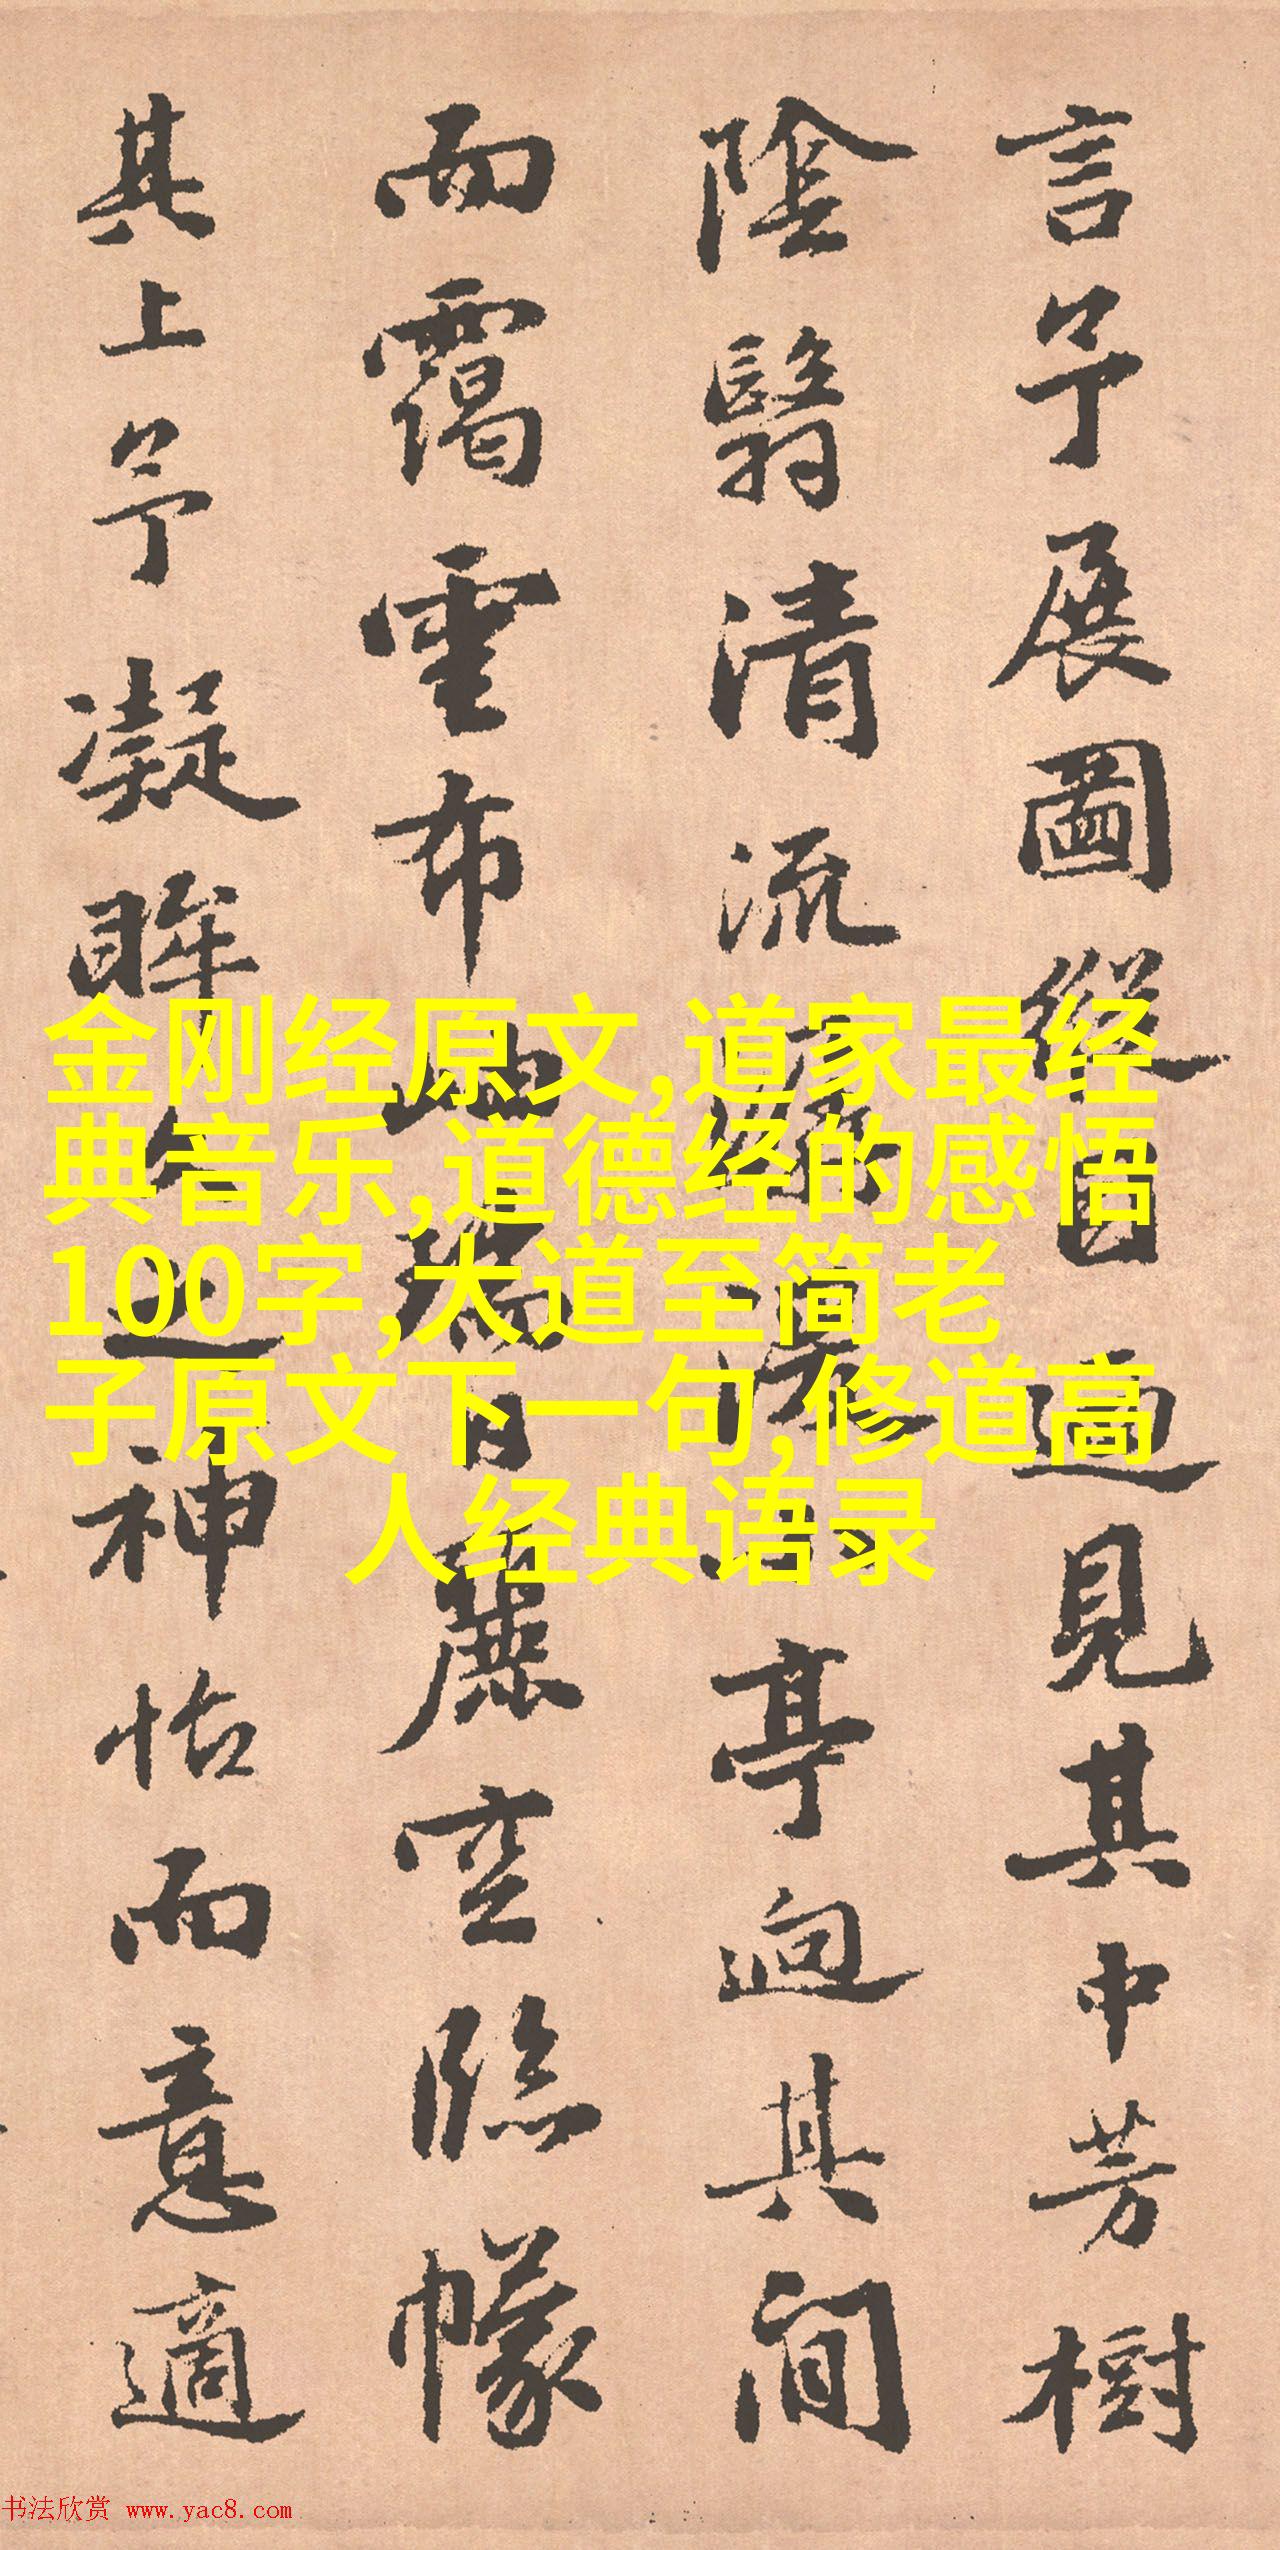 言予展圖縱目遍見其中芳樹
陰翳清流
亭迴其間
而靄雲布
麗空臨幪
其上予凝眸
神怡而意適
金刚经原文,道家最经
典音乐,道德经的感悟
100字,大道至简老
子原文下一句,修道高
人经典语录
书法欣赏 www.yac8.com